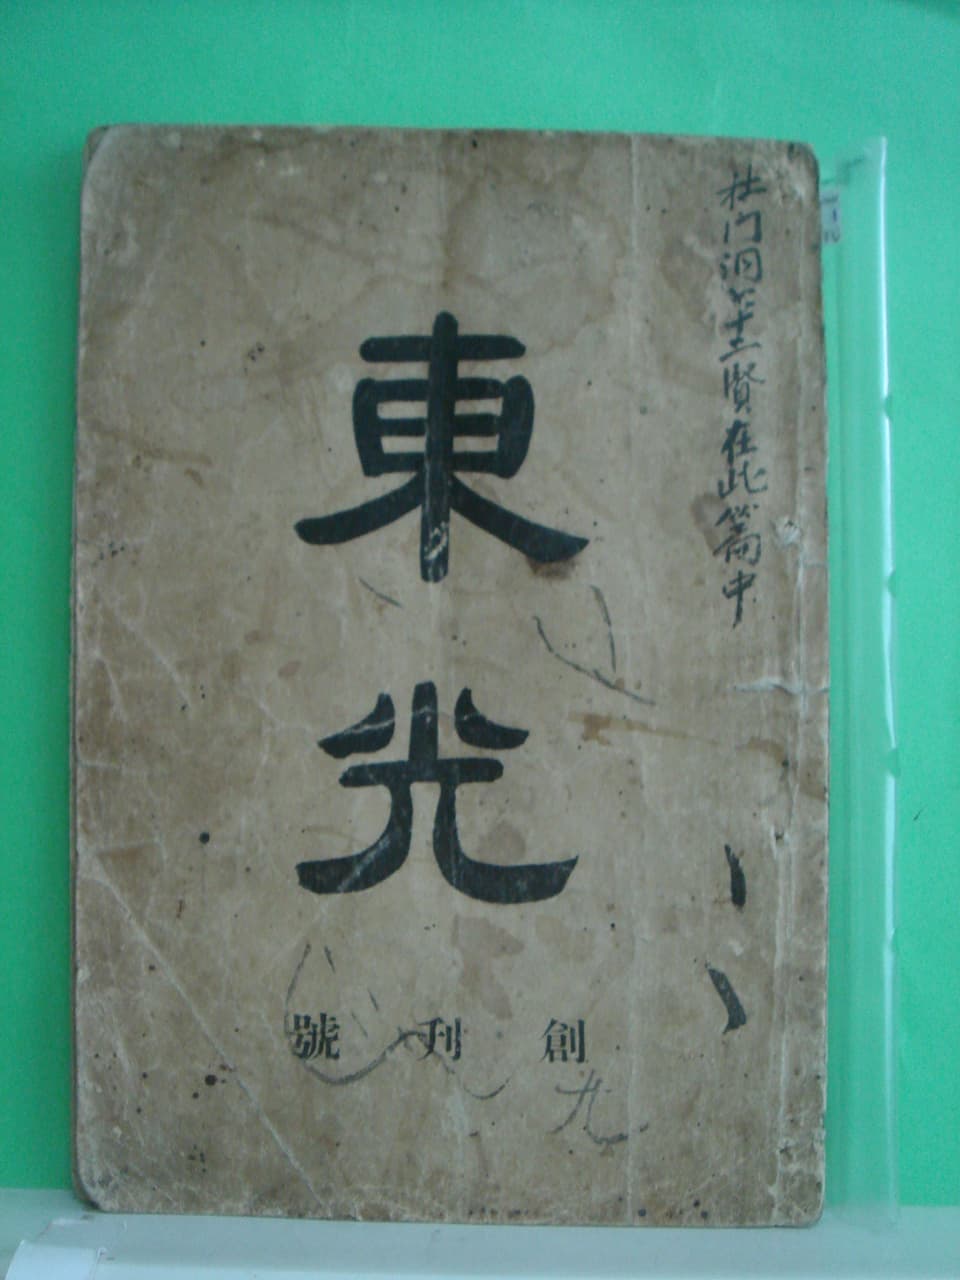 杜門洞七十二賢在此篇中
東光
創刊號
九